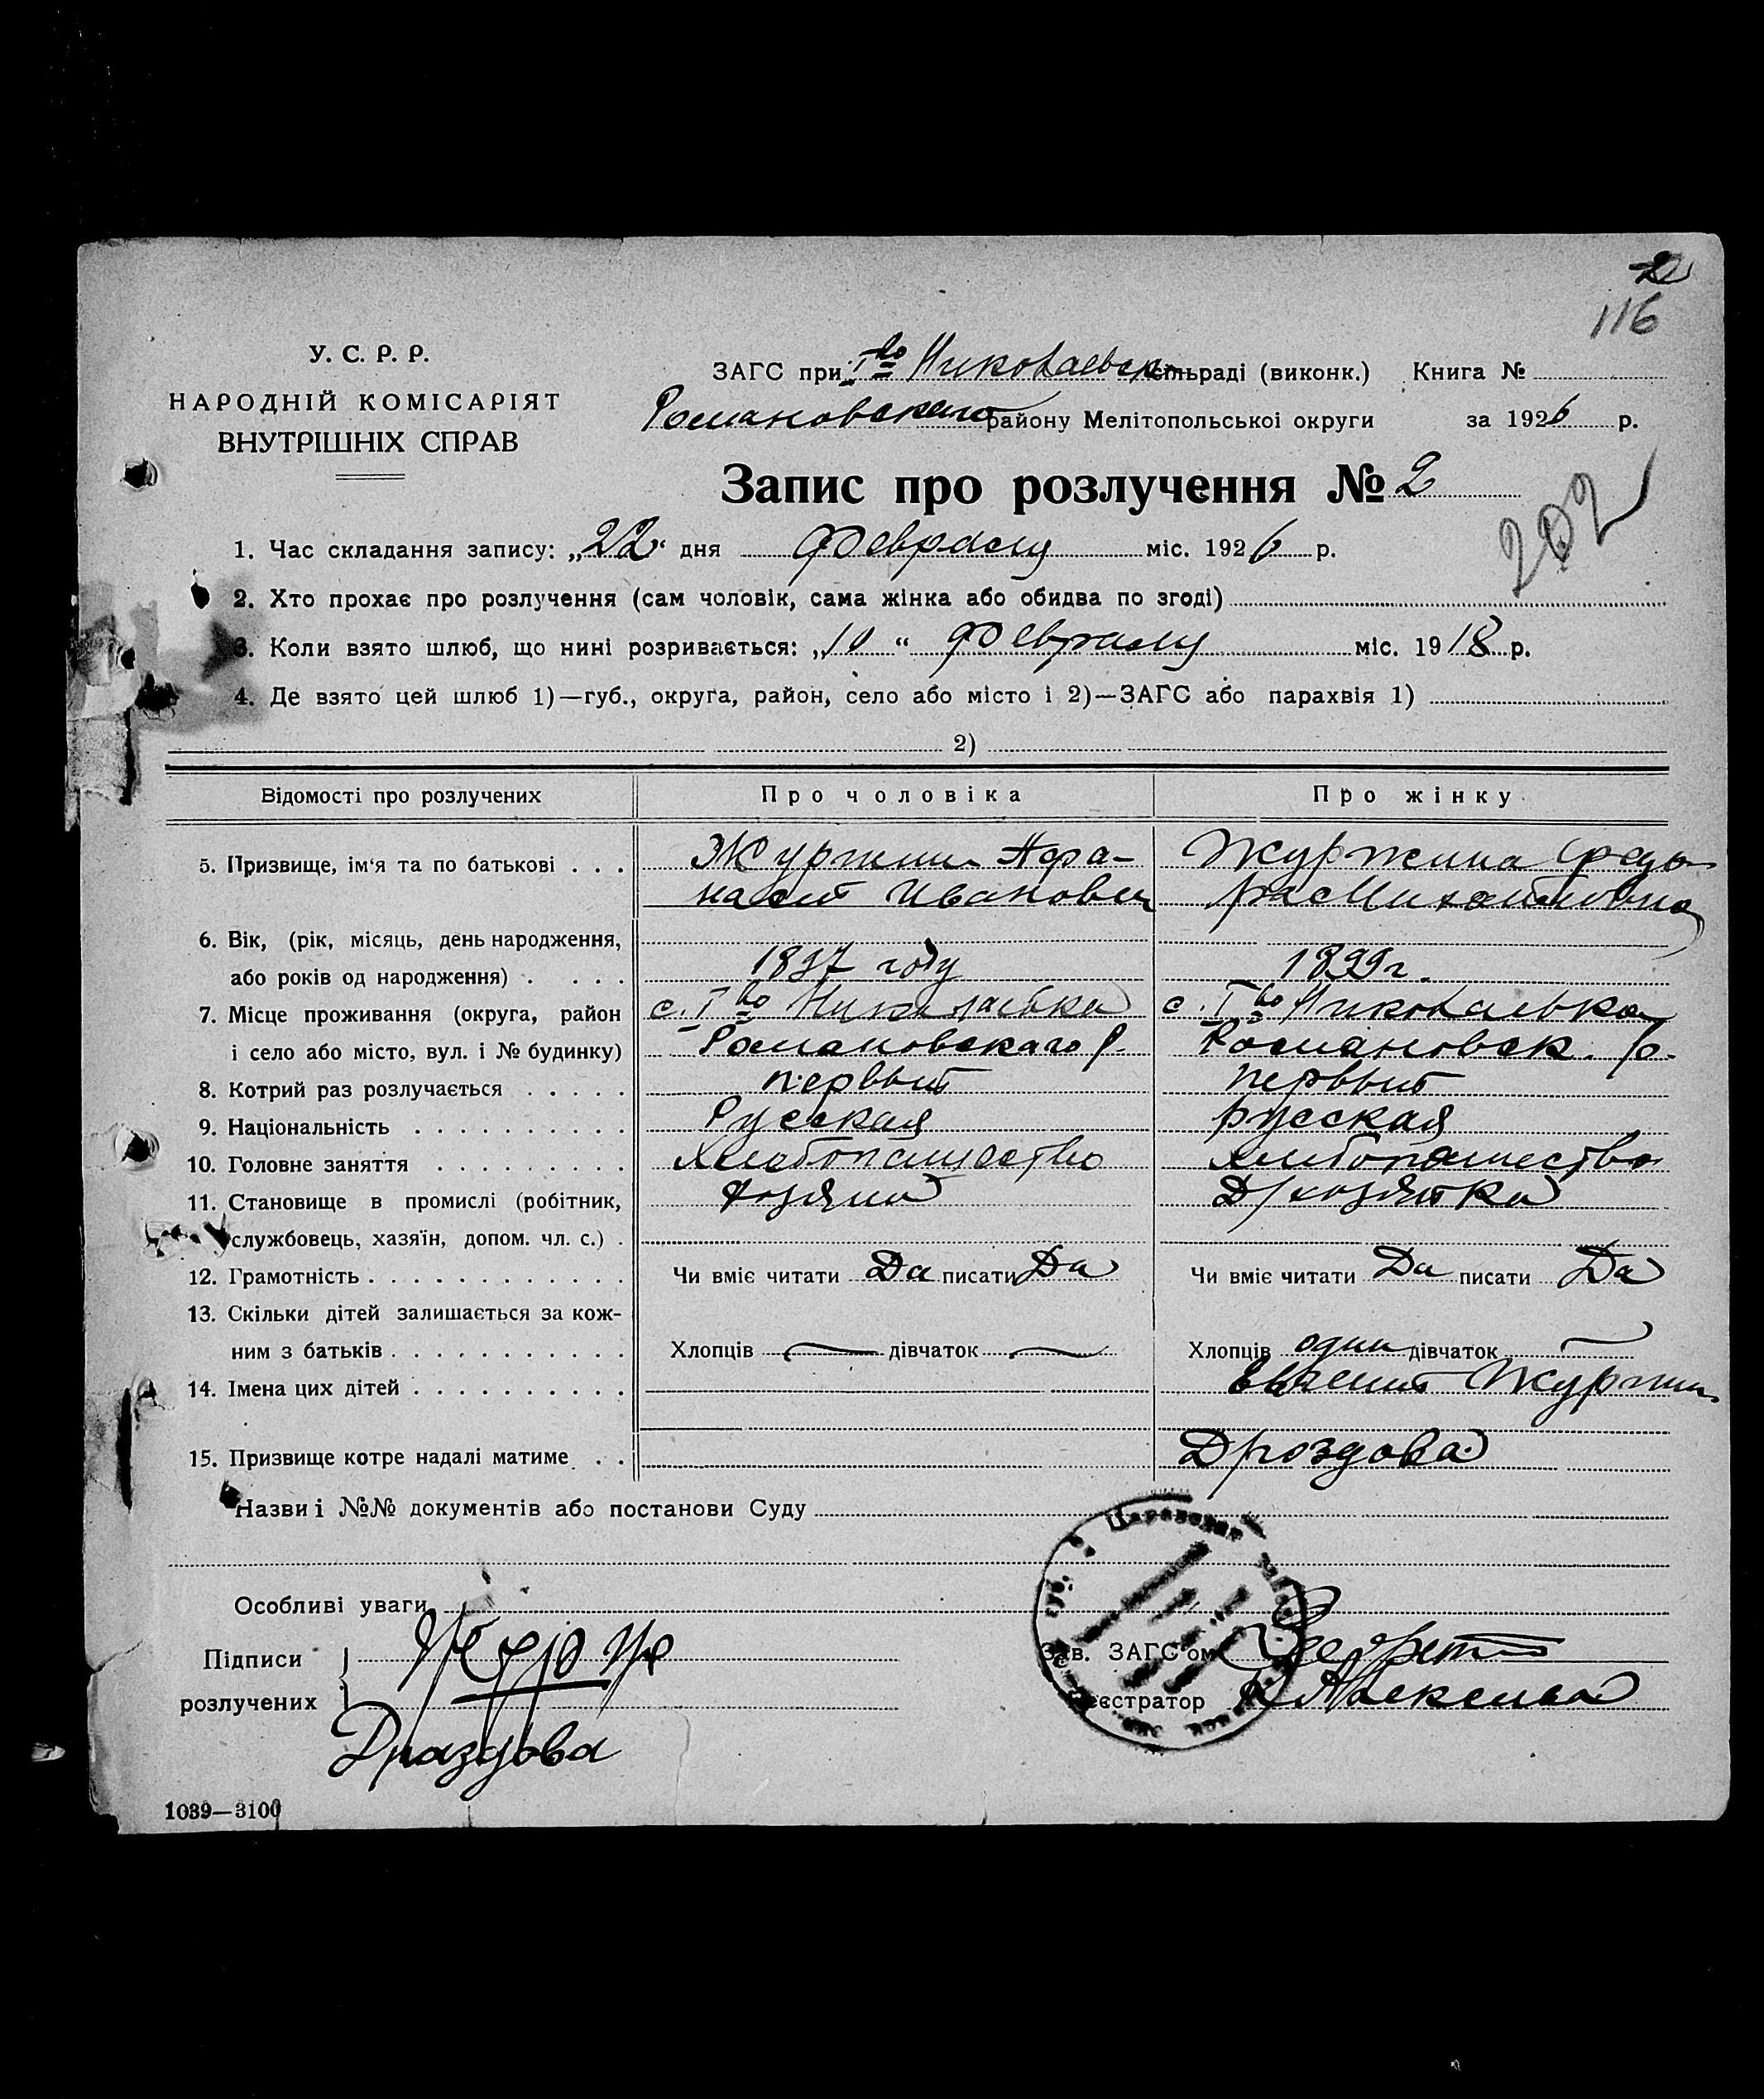 2
116
У. С. Р. Р.
НАРОДНІЙ КОМІСАРІЯТ
ВНУТРІШНІХ СПРАВ
ЗАГС при Iво Николаевск сільраді (виконк.) Книга №
Романовскаго району Мелітопольської округи за 1926 р.
Запис про розлучення № 2
202
1. Час складання запису: „22“ дня Февраля міс. 1926 р.
2. Хто прохає про розлучення (сам чоловік, сама жінка або обидва по згоді)
3. Коли взято шлюб, що нині розривається: „10“ Февраля міс. 1918 р.
4. Де взято цей шлюб 1)—губ., округа, район, село або місто і 2)—ЗАГС або парахвія 1)
2)
Відомості про розлучених Про чоловіка Про жінку
5. Призвище, ім‘я та по батькові . . . Журжин Афа- Журжина
насий Иванович Михайловна
6. Вік, (рік, місяць, день народження,
або років од народження) . . . . 1897 году 1899 г.
7. Місце проживання (округа, район с. Iво Николаевка с. Iво Николаевка
і село або місто, вул. і № будинку) Романовскаго р. Романовск. р.
8. Котрий раз розлучається . . . . . первый первый
9. Національність . . . . . . . . . . Русская русская
10. Головне заняття . . . . . . . . . хлебопашество хлебопашество
11. Становище в промислі (робітник, хозяин Д/хозяйка
службовець, хазяїн, допом. чл. с.) .
12. Грамотність . . . . . . . . . . . . Чи вміє читати Да писати Да Чи вміє читати Да писати Да
13. Скільки дітей залишається за кож-
ним з батьків . . . . . . . . . . . Хлопців — дівчаток — Хлопців один дівчаток —
14. Імена цих дітей . . . . . . . . . . Евгений Журжин
15. Призвище котре надалі матиме . . Дроздова
Назви і №№ документів або постанови Суду
Особливі уваги
Підписи
розлучених
Драздова
Зав. ЗАГС‘ом
Реєстратор
1039—3100